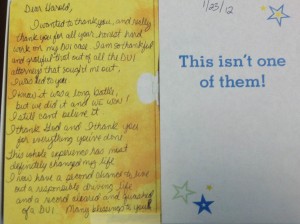 Dear Harold,
I wanted to thank you, and really
thank you for all your honest hard
work on my DUI case. I am so thankful
and grateful that out of all the DUI
attorneys that sought me out,
I was led to you.
I know it was a long battle,
but we did it and we won!
I still can't believe it.
I thank God and I thank you
for everything you've done.
This whole experience has most
definitely changed my life.
I now have a second chance to live
out a responsible driving life
and a record cleared and
of a DUI. Many blessings to you!
1/23/12
This isn't one
of them!